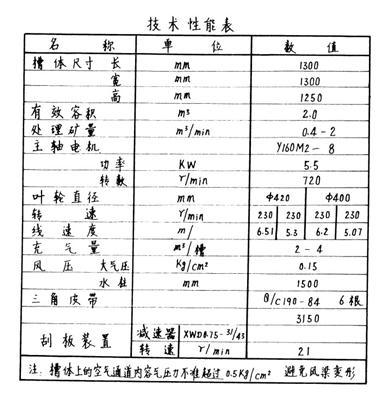 技术性能表
名 称 单 位 数 值
槽体尺寸 长 mm 1300
宽 mm 1300
高 mm 1250
有效容积 m³ 2.0
处理矿量 m³/min 0.4-2
主轴电机 Y160M2-8
功率 KW 5.5
转数 r/min 720
叶轮直径 mm Φ420 Φ400
转 速 r/min 230 230 230 230
线 速 度 m/ 6.51 5.3 6.2 5.07
充 气 量 m³/槽 2-4
风 压 大气压 Kg/cm² 0.15
水柱 mm 1500
三角皮带 B/C190-84 6根
3150
刮板装置 减速器 XWDR75-31/43
转 速 r/min 21
注:槽体上的空气通道内容气压力不准超过0.5Kg/cm² 避免风梁变形